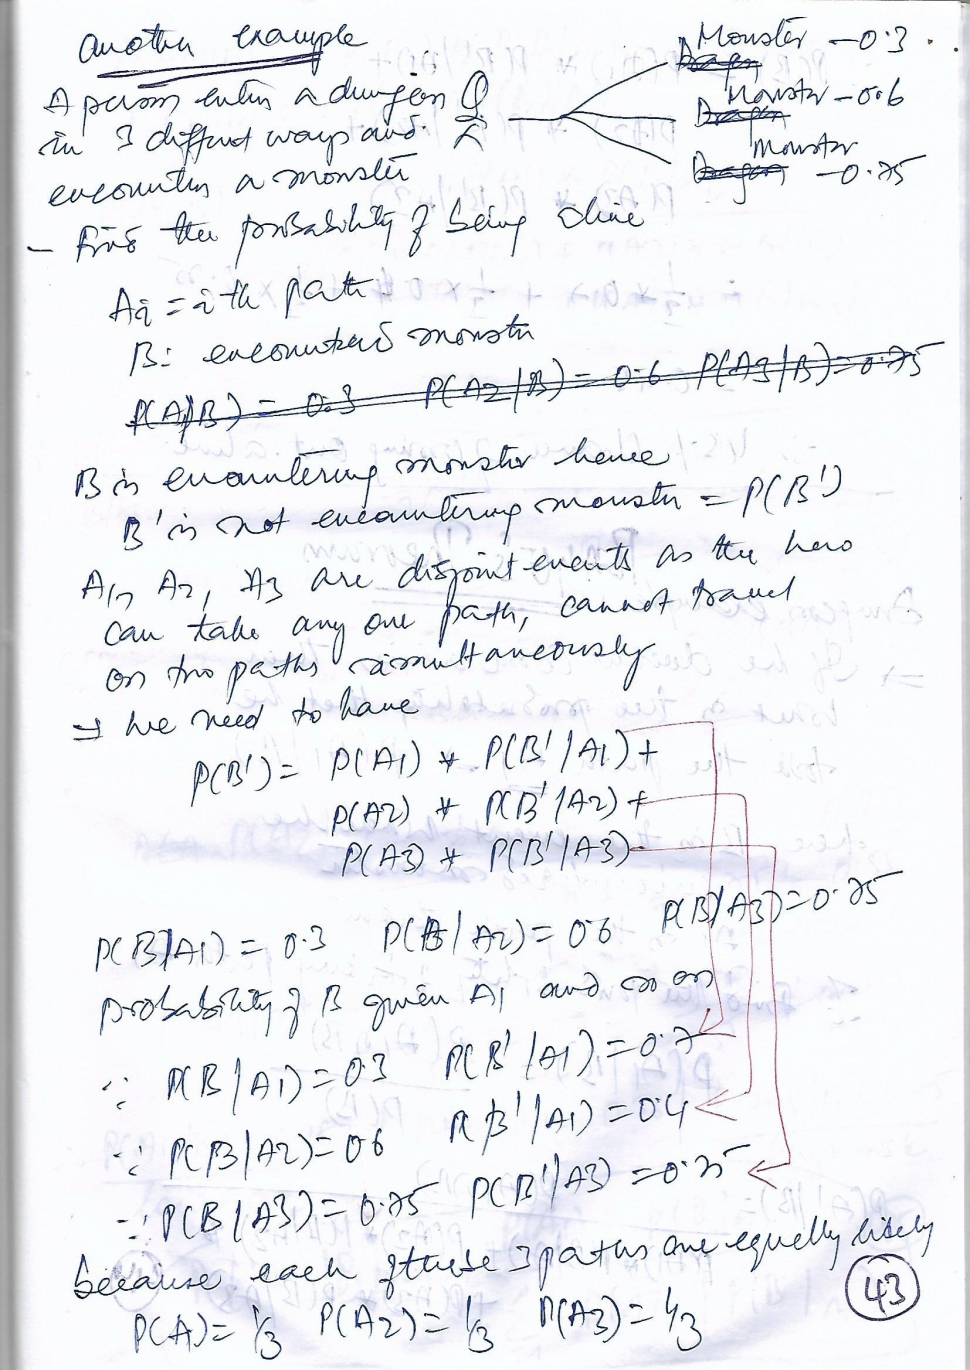 another example
A person enters a dungeon
in 3 diffrut ways and
encounters a monster
Monster - 0.3
Monster - 0.6
Monster
Dragon - 0.75
- Find the probability of being alive
Ai = i th path
B: encountered monster
P(A1|B) = 0.3 P(A2|B) = 0.6 P(A3|B) = 0.75
B is encountering monster hence
B' is not encountering monster = P(B')
A1, A2, A3 are disjoint events as the hero
can take any one path, cannot travel
on two paths simultaneously
⇒ We need to have
P(B') = P(A1) * P(B'/A1) +
P(A2) * P(B'/A2) +
P(A3) * P(B'/A3)
P(B/A1) = 0.3 P(B/A2) = 0.6 P(B/A3) = 0.75
probability of B given A1 and so on
∵ P(B/A1) = 0.3 P(B'/A1) = 0.7
∵ P(B/A2) = 0.6 P(B'/A1) = 0.4
∵ P(B/A3) = 0.75 P(B'/A3) = 0.25
because each of these 3 paths are equally likely
P(A) = 1/3 P(A2) = 1/3 P(A3) = 1/3
43